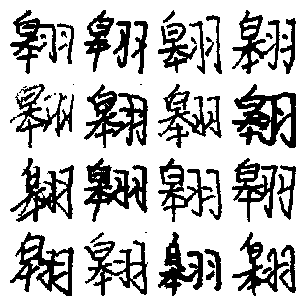 翱翱翱翱
翱翱翱翱
翱翱翱翱
翱翱翱翱